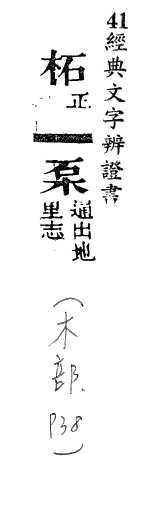 41經典文字辨證書
柘 正
通出地
里志
(木部.P38)